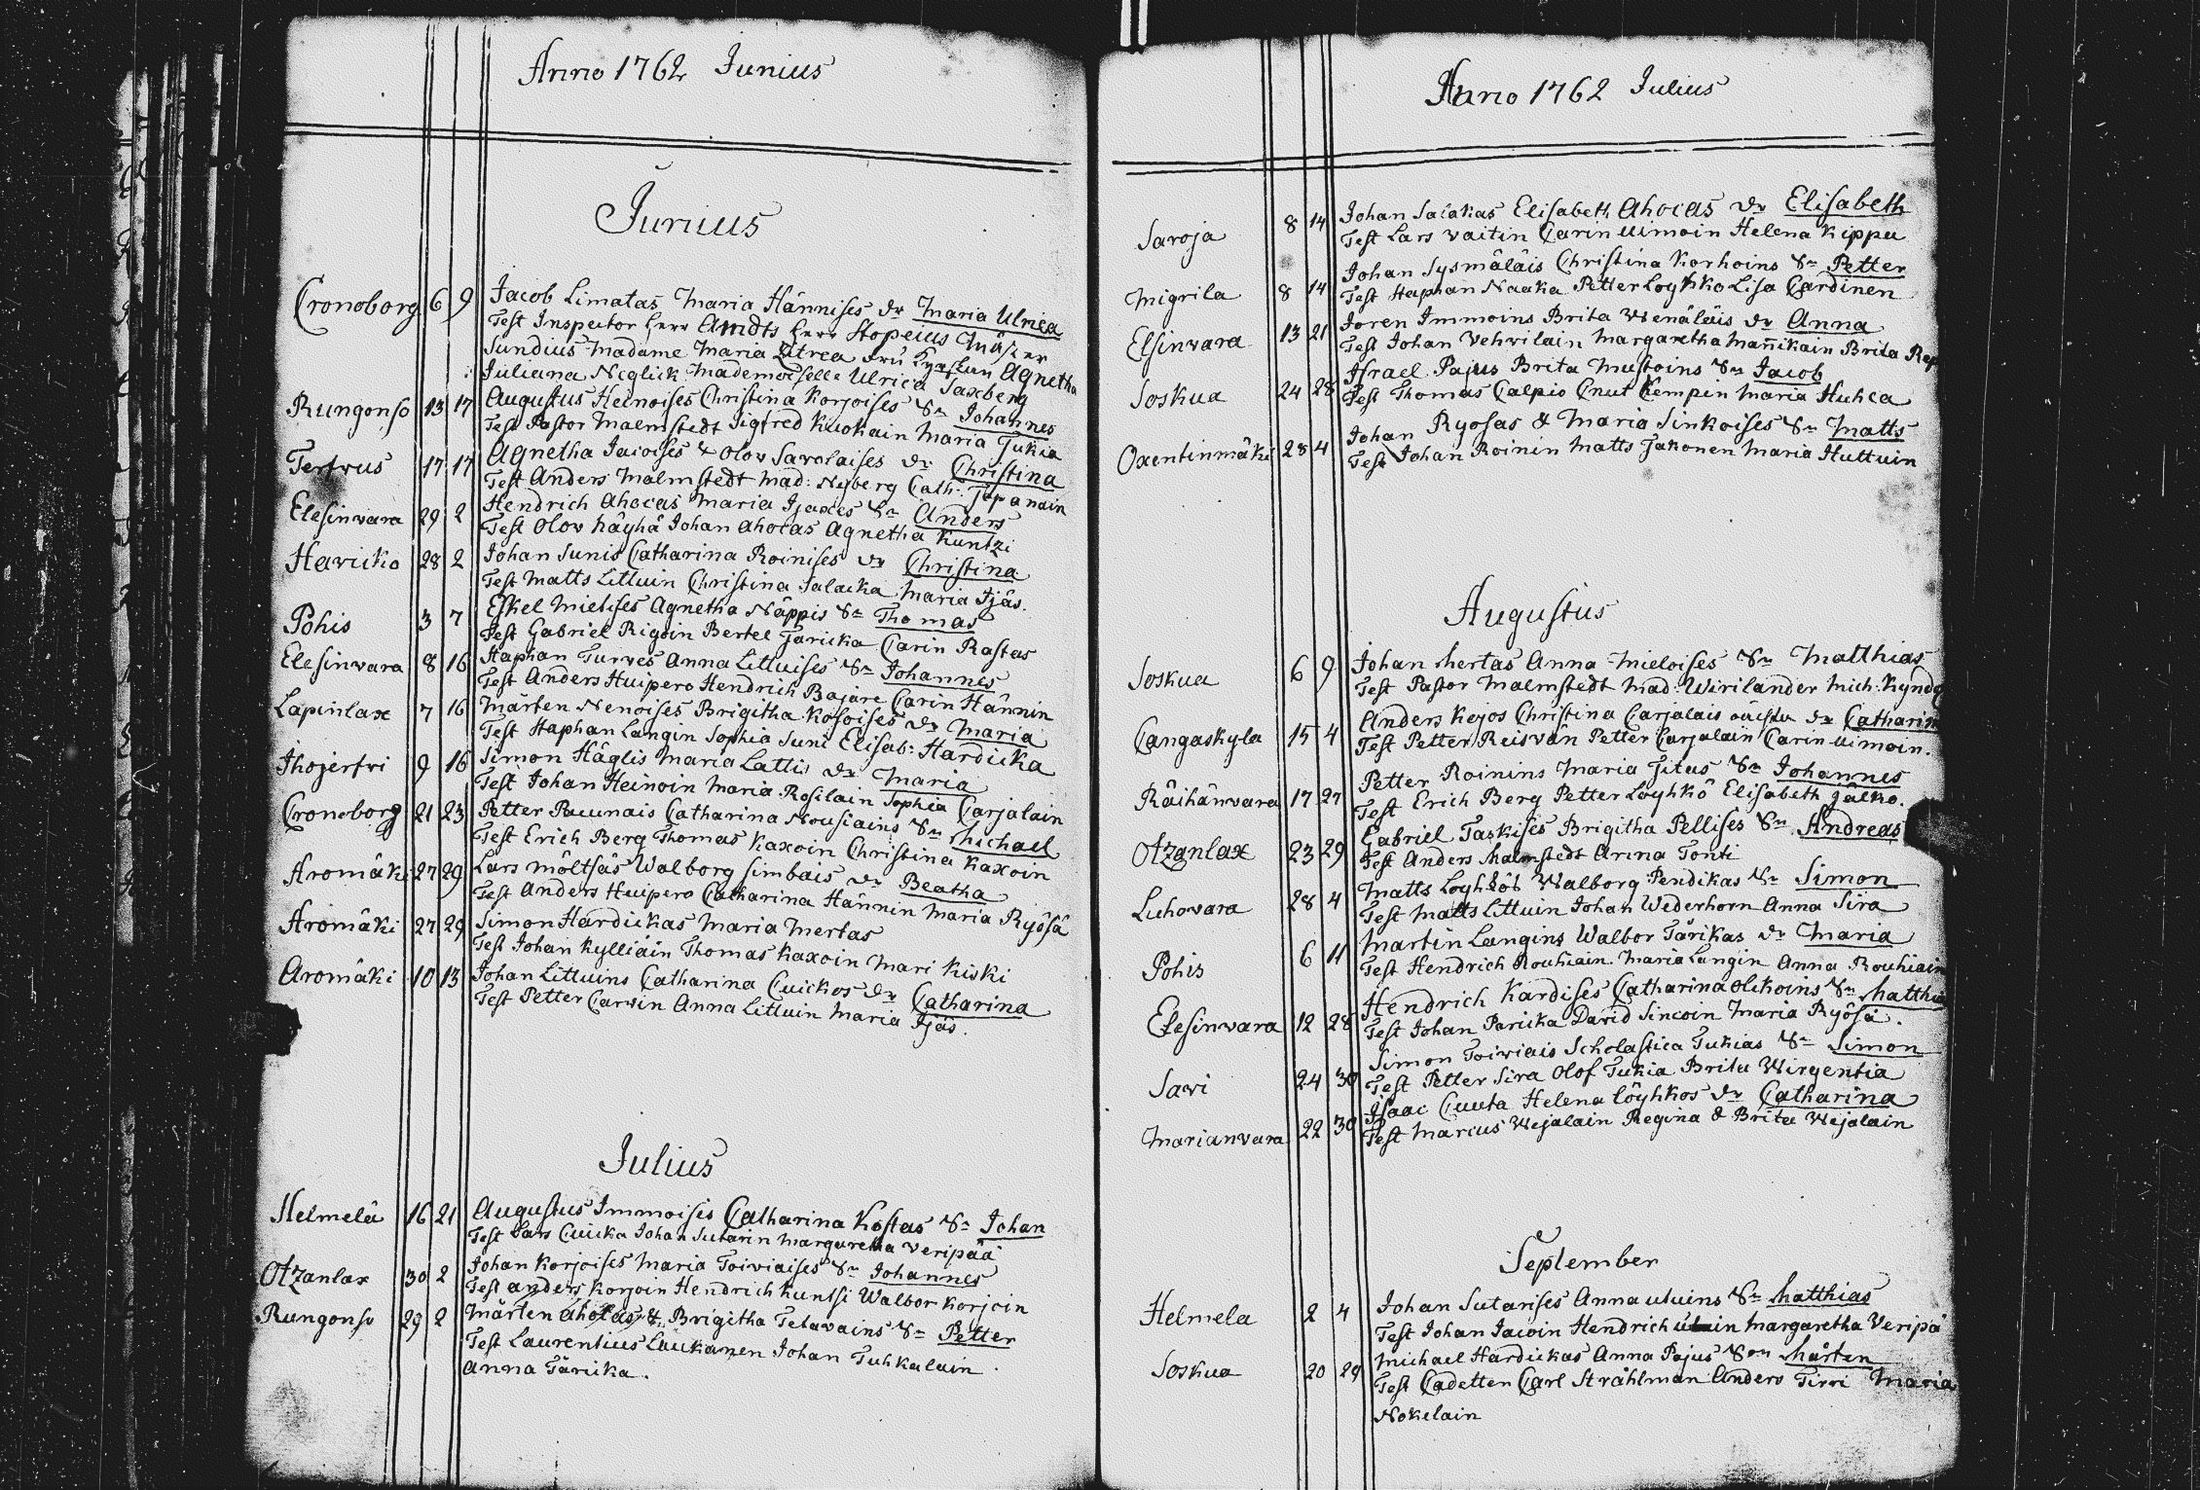 Anno 1762 Junius
Junius
Cronoborg 6 9 Jacob Limatas Maria Hännises dr Maria Ulrica
Test Inspector herr Amdts herr Stopeius
Sundius Madame Maria fru Agnetha
Juliana Neglick Mademoiselle Ulrica Saxberg
Rungonso 13 17 Augustus Heinoises Christina Korjoises Sn Johannes
Test Pastor Malmstedt Sigfred Kuokain Maria Tukia
Tervus 17 17 Agnetha Jacoises & Olov Savolaises dr Christina
Test Anders Malmstedt Mad: Nyberg Cath: Tepanain
Elesinvara 29 2 Hendrich Ahocas Maria Ijaxes Sn Anders
Test Olov häyhä Johan Ahocas Agnetha Kuntzi
Havuko 28 2 Johan Sunis Catharina Roinises dr Christina
Test Matts Littuin Christina Salacka Maria Ijäs.
Pohis 3 7 Eskel Mielises Agnetha Näppis Sn Thomas
Test Gabriel Rigoin Bertel Taricka Carin Rastas
Elesinvara 8 16 Staphan Turves Anna Littuises Sn Johannes
Test Anders Huipero Hendrich Bajare Carin Hännin
Lapinlax 7 16 Mårten Nenoises Brigitha Kosoises dr Maria
Test Staphan Langin Sophia Suni Elisab: Hardicka
Ihojerfvi 9 16 Simon Häglis Maria Lattis dr Maria
Test Johan Heinoin Maria Rosilain Sophia Carjalain
Cronoborg 21 23 Petter Paunais Catharina Nousiains Sn Michael
Test Erich Berg Thomas Kaxoin Christina Kaxoin
Aromäki 27 29 Lars Möltsäs Walborg Simbais dr Beatha
Test Anders Huipero Catharina Hännin Maria Ryösä
Aromäki 27 29 Simon Hardickas Maria Mertas
Test Johan Kylliäin Thomas Kaxoin Mari Kiski
Aromäki 10 13 Johan Littuins Catharina Cuickos dr Catharina
Test Petter Carvin Anna Littuin Maria Ijäs.
Julius
Helmelä 16 21 Augustus Immoisis Catharina Kostas Sn Johan
Test Lars Cuicka Johan Sutarin Margaretha Veripää
Otzanlax 30 2 Johan Korjoises Maria Toiviaises Sn Johannes
Test Anders Korjoin Hendrich Kuntsi Walbor Korjoin
Rungonso 29 2 Mårten Ahocas & Brigitha Telavains Sn Petter
Test Laurentius Laukanen Johan Tuhkalain
Anna Täricka.
Anno 1762 Julius
Saroja 8 14 Johan Salakas Elisabeth Ahocas dr Elisabeth
Test Lars Vaitin Carin Uimoin Helena Kippu
Migrila 8 14 Johan Sysmäläis Christina Korhoins Sn Petter
Test Staphan Naaka Petter Loyhko Lisa Cardinen
Elsinvara 13 21 Joren Immoins Brita Wenäläis dr Anna
Test Johan Vehvilain Margaretha Mannikain Brita Rep
Soskua 24 28 Israel Pajus Brita Mustoins Sn Jacob
Test Thomas Calpio Cnut Kempin Maria Huhca
Oxentinmäki 28 4 Johan Ryosas & Maria Sinkoises Sn Matts
Test Johan Roinin Matts Jakonen Maria Huttuin
Augustus
Soskua 6 9 Johan Mertas Anna Mieloises Sn Matthias
Test Pastor Malmstedt Mad: Wirilander Mich: Kynd
Cangaskyla 15 4 Anders Kejos Christina Carjalais dr Catharin
Test Petter Reisvän Petter Carjalain Carin Uimoin.
Räihänvara 17 27 Petter Roinins Maria Titus Sn Johannes
Test Erich Berg Petter Loyhkö Elisabeth Jälkö.
Otzanlax 23 29 Gabriel Taskises Brigitha Pellises Sn Andreas
Test Anders Malmstedt Anna Tonti
Luhovara 28 4 Matts Loyhköb Walborg Pendikas Sn Simon
Test Matts Littuin Johan Wederhorn Anna Sira
Pohis 6 11 Martin Langins Walbor Tärikas dr Maria
Test Hendrich Rouhiain. Maria Langin Anna Rouhiain
Elesinvara 12 28 Hendrich Kardises Catharina Olikoins Sn Matthia
Test Johan Paricka David Sincoin Maria Ryösä.
Savi 24 30 Simon Toiviais Scholastica Tukias Sn Simon
Test Petter Sira Olof Tukia Brita Wirgentia
Marianvara 22 30 Isaac Cuuta Helena löyhkos dr Catharina
Test Marcus Wejalain Regina & Brita Wejalain
September
Helmela 2 4 Johan Sutarises Anna utuins Sn Matthias
Test Johan Jacoin Hendrich Margaretha Veripä
Soskua 20 29 Michael Hardickas Anna Pajus Son Mårten
Test Cadetten Carl Stråhlman Anders Tirri Maria
Nokelain